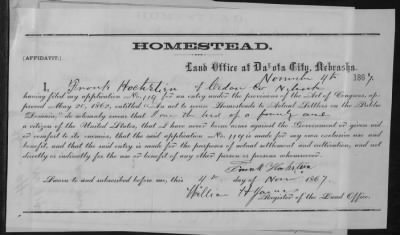 HOMESTEAD.
(AFFIDAVIT.)
Land Office at Dakota City, Nebraska.
November 4th 1867.
I, Frank of Cedar Co
having filed my application No. for an entry under the provisions of the Act of Congress, ap-
proved May 20, 1862, entitled "An act to secure Homesteads to Actual Settlers on the Public
Domain," do solemnly swear that I am the head of a family and
a citizen of the United States, that I have never borne arms against the Government or given aid
or comfort to its enemies, that the said application No. is made for my own exclusive use and
benefit, and that the said entry is made for the purposes of actual settlement and cultivation, and not
directly or indirectly for the use or benefit of any other person or persons whomsoever.
Frank
Sworn to and subscribed before me, this 4th day of Nov 1867.
William H
Register of the Land Office.